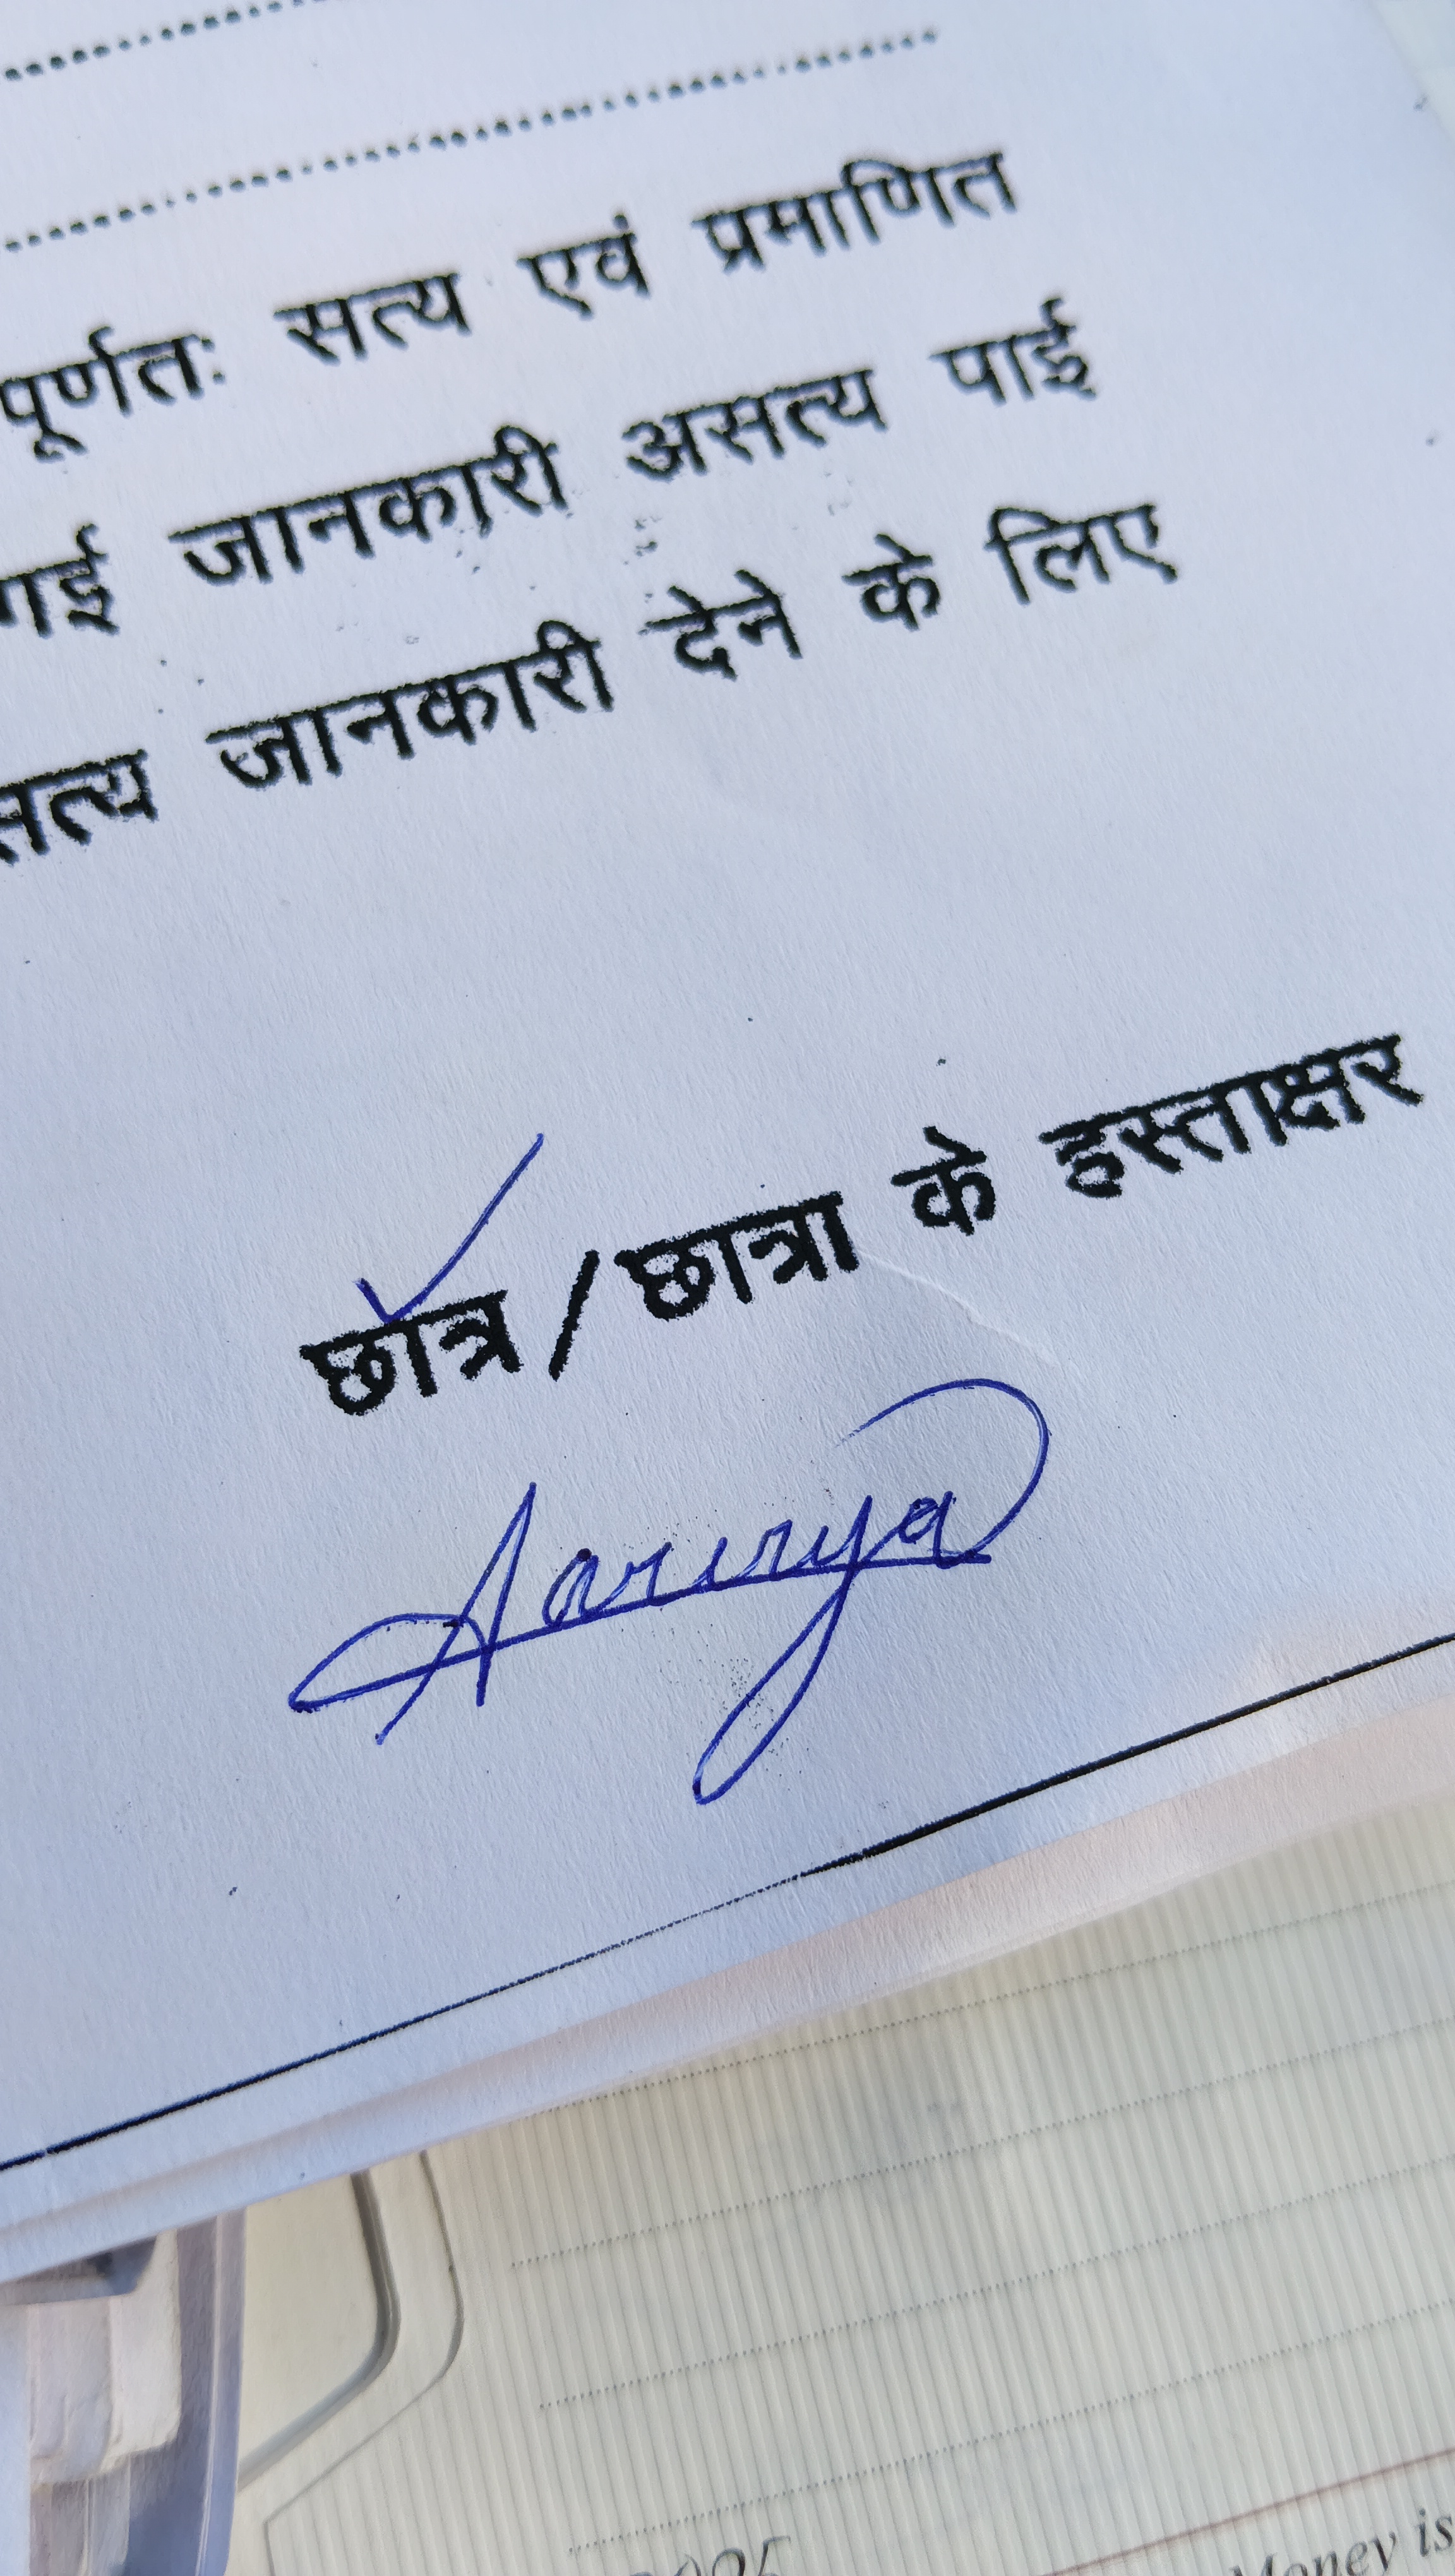 पूर्णतः सत्य एवं प्रमाणित
गई जानकारी असत्य पाई
सत्य जानकारी देने के लिए
छात्र/छात्रा के हस्ताक्षर
Money is